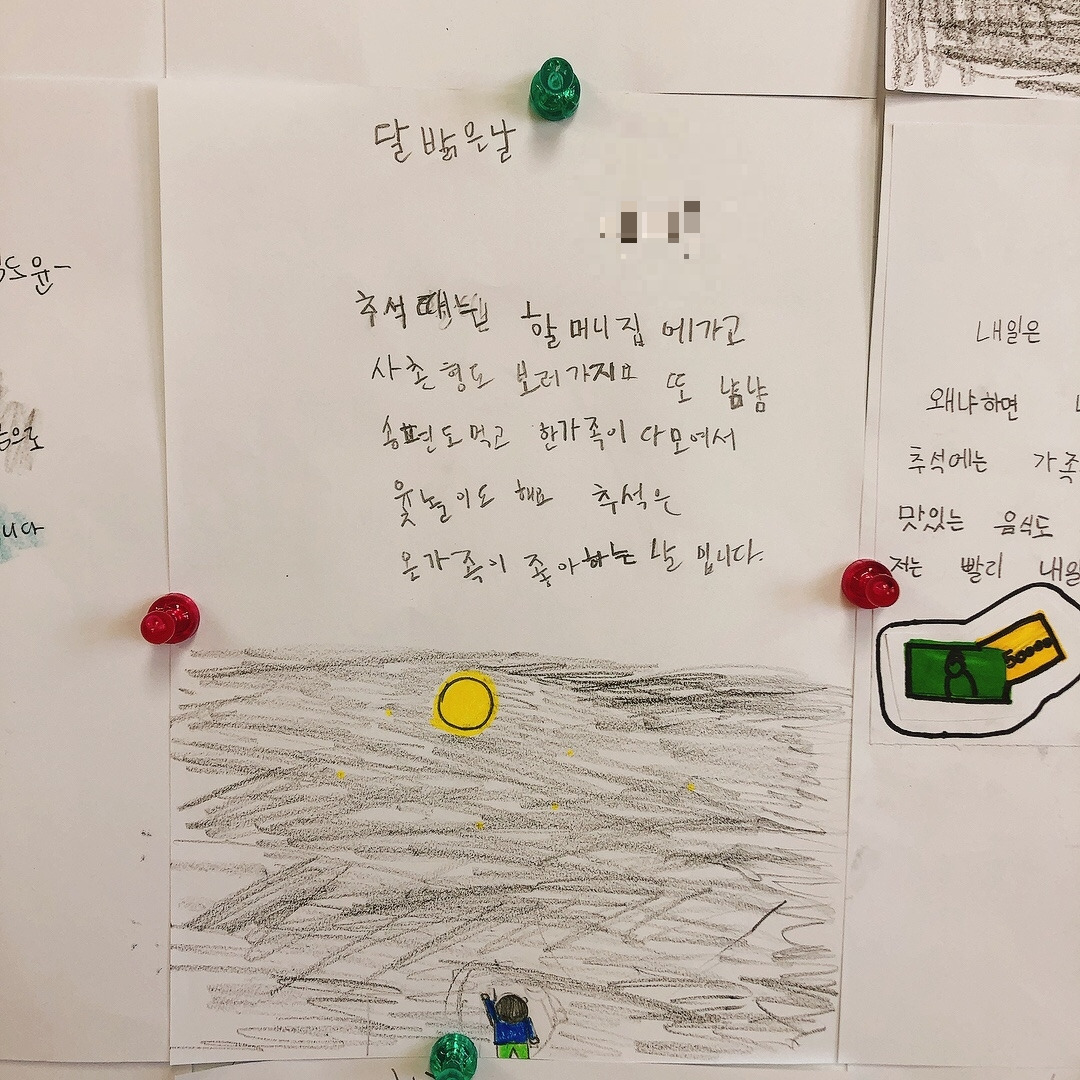 달 밝은날
추석 때는 할머니집 에가고
사촌형도 보러가지요 또 냠냠
송편도먹고 한가족이 다모여서
윷놀이도 해요 추석은
온가족이 좋아하는 날 입니다.
도윤-
으로
니다
내일은
왜냐하면
추석에는 가족
맛있는 음식도
저는 빨리 내일
50000